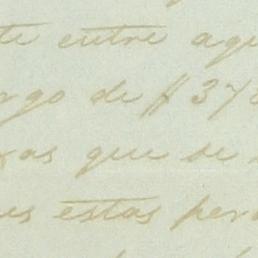 te entre aqu
rgo de $ 378
xas que se
es estas per